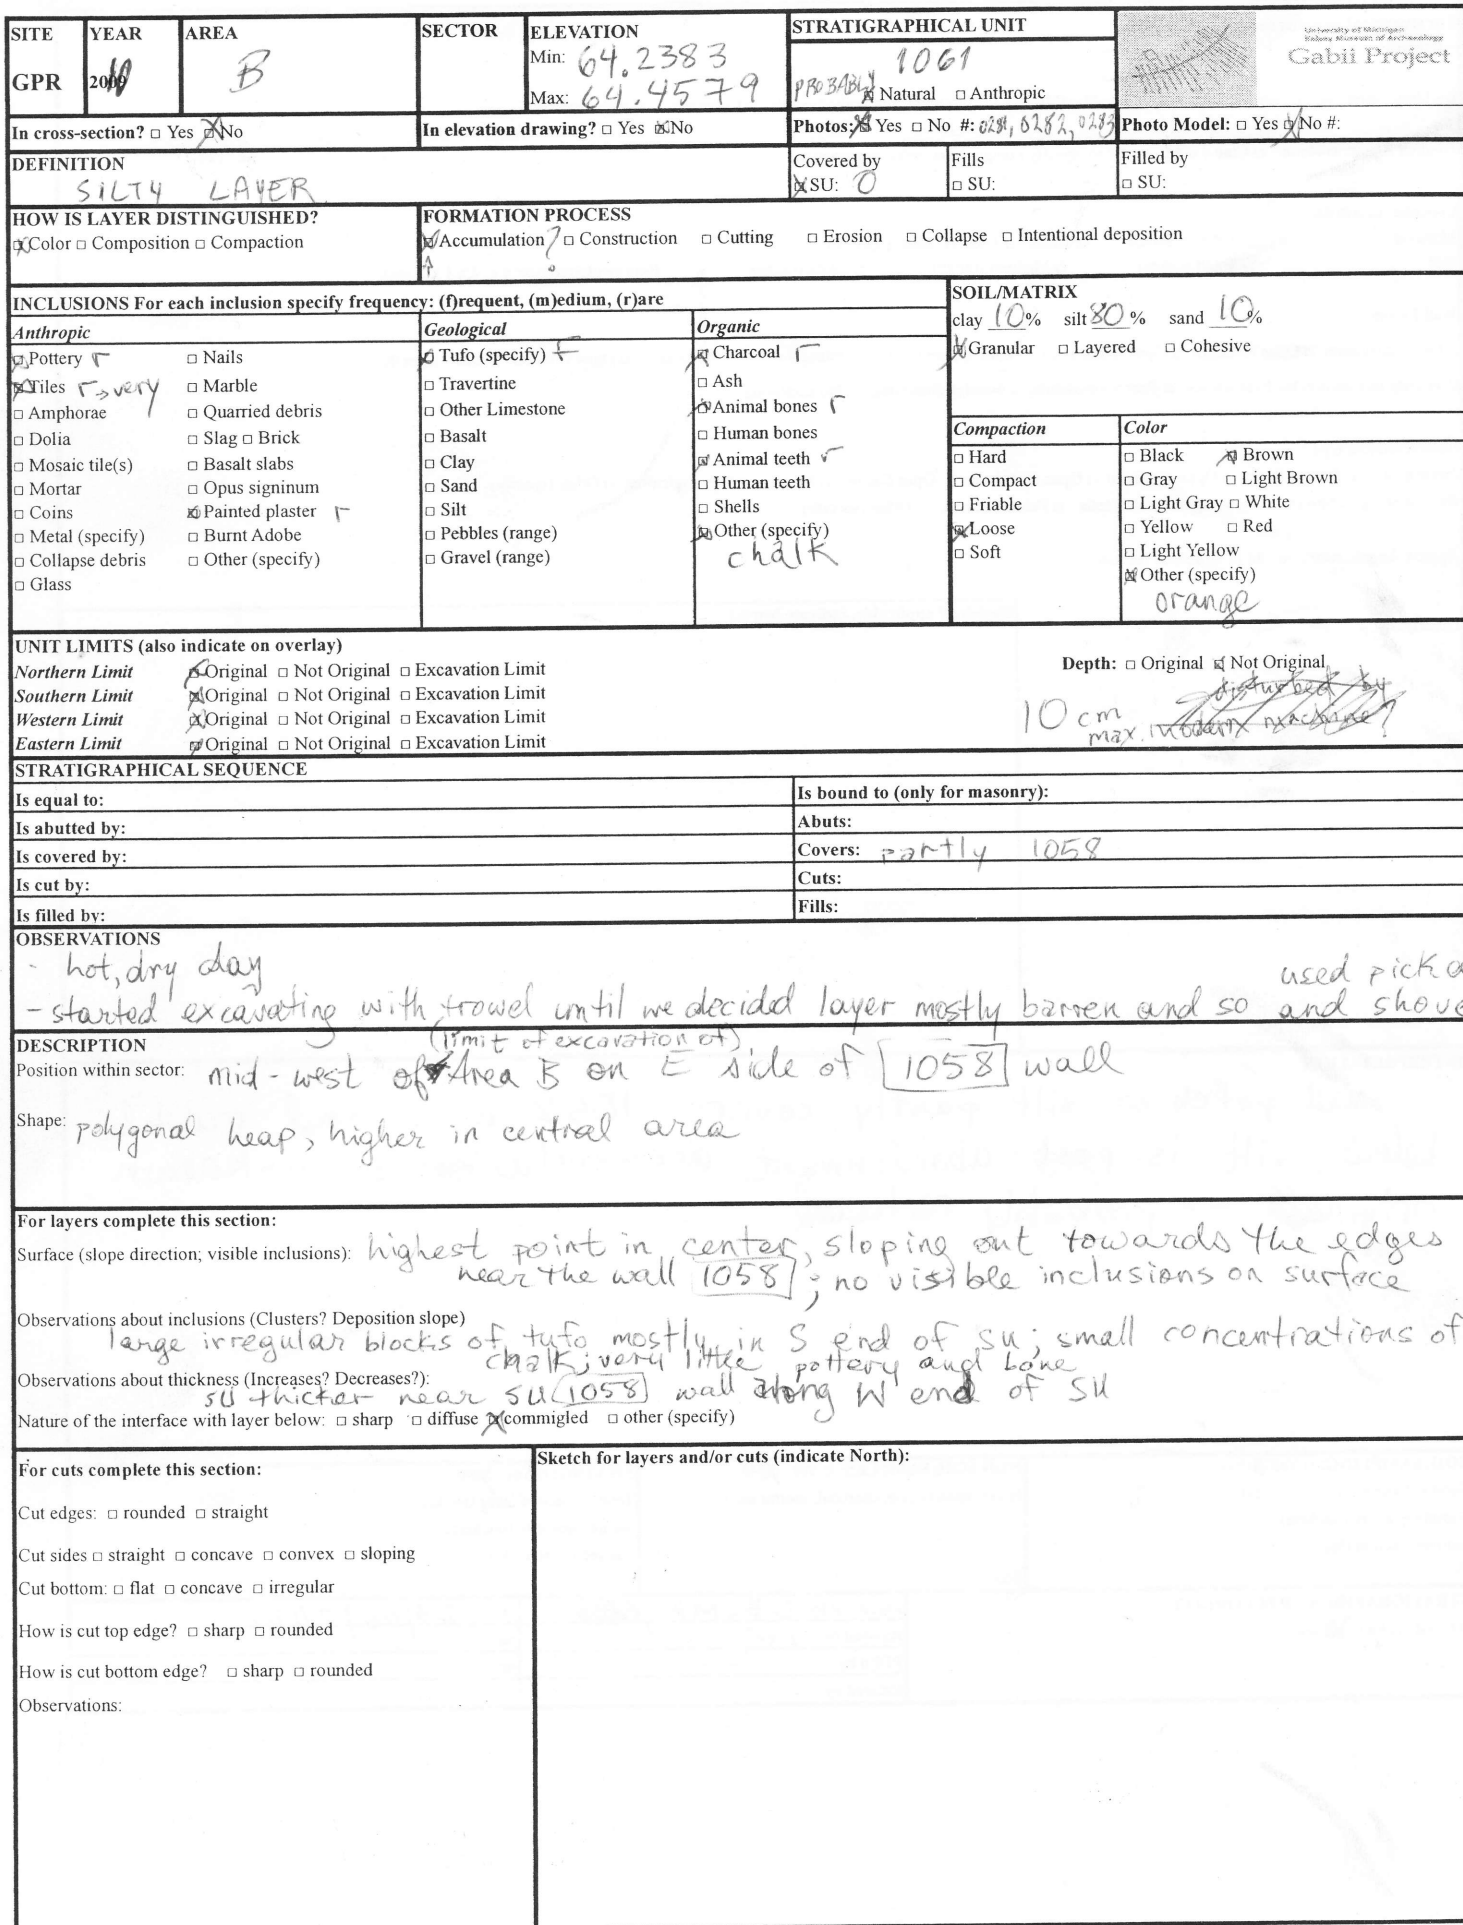 SITE YEAR AREA SECTOR ELEVATION STRATIGRAPHICAL UNIT
GPR B Min: 64.2383 Max: 64.4579
1061
PROBABLY ☒ Natural □ Anthropic
University of Michigan
Kelsey Museum of Archaeology
Gabii Project
In cross-section? □ Yes ☒ No In elevation drawing? □ Yes ☒ No Photos: ☒ Yes □ No #: 0281, 0282, 0283 Photo Model: □ Yes ☒ No #:
DEFINITION
SILTY LAYER
Covered by
☒ SU: 0
Fills
□ SU:
Filled by
□ SU:
HOW IS LAYER DISTINGUISHED?
☒ Color □ Composition □ Compaction
FORMATION PROCESS
☒ Accumulation ? □ Construction □ Cutting □ Erosion □ Collapse □ Intentional deposition
INCLUSIONS For each inclusion specify frequency: (f)requent, (m)edium, (r)are
Anthropic
☒ Pottery r
☒ Tiles r → very
□ Amphorae
□ Dolia
□ Mosaic tile(s)
□ Mortar
□ Coins
□ Metal (specify)
□ Collapse debris
□ Glass
□ Nails
□ Marble
□ Quarried debris
□ Slag □ Brick
□ Basalt slabs
□ Opus signinum
☒ Painted plaster r
□ Burnt Adobe
□ Other (specify)
Geological
☒ Tufo (specify) f
□ Travertine
□ Other Limestone
□ Basalt
□ Clay
□ Sand
□ Silt
□ Pebbles (range)
□ Gravel (range)
Organic
☒ Charcoal r
□ Ash
☒ Animal bones r
□ Human bones
☒ Animal teeth r
□ Human teeth
□ Shells
☒ Other (specify)
chalk
SOIL/MATRIX
clay 10% silt 80% sand 10%
☒ Granular □ Layered □ Cohesive
Compaction
□ Hard
□ Compact
□ Friable
☒ Loose
□ Soft
Color
□ Black ☒ Brown
□ Gray □ Light Brown
□ Light Gray □ White
□ Yellow □ Red
□ Light Yellow
☒ Other (specify)
orange
UNIT LIMITS (also indicate on overlay)
Northern Limit ☒ Original □ Not Original □ Excavation Limit
Southern Limit ☒ Original □ Not Original □ Excavation Limit
Western Limit ☒ Original □ Not Original □ Excavation Limit
Eastern Limit ☒ Original □ Not Original □ Excavation Limit
Depth: □ Original ☒ Not Original
disturbed by
10 cm
max. modern machine?
STRATIGRAPHICAL SEQUENCE
Is equal to: Is bound to (only for masonry):
Is abutted by: Abuts:
Is covered by: Covers: partly 1058
Is cut by: Cuts:
Is filled by: Fills:
OBSERVATIONS
- hot, dry day
used pick a
- started excavating with trowel until we decided layer mostly barren and so and shove
DESCRIPTION
(limit of excavation of)
Position within sector: mid-west of Area B on E side of 1058 wall
Shape: polygonal heap, higher in central area
For layers complete this section:
Surface (slope direction; visible inclusions): highest point in center, sloping out towards the edges
near the wall 1058; no visible inclusions on surface
Observations about inclusions (Clusters? Deposition slope)
large irregular blocks of tufo mostly in S end of SU; small concentrations of
chalk; very little pottery and bone
Observations about thickness (Increases? Decreases?):
SU thicker near SU 1058 wall along W end of SU
Nature of the interface with layer below: □ sharp □ diffuse ☒ commigled □ other (specify)
For cuts complete this section:
Cut edges: □ rounded □ straight
Cut sides □ straight □ concave □ convex □ sloping
Cut bottom: □ flat □ concave □ irregular
How is cut top edge? □ sharp □ rounded
How is cut bottom edge? □ sharp □ rounded
Observations:
Sketch for layers and/or cuts (indicate North):